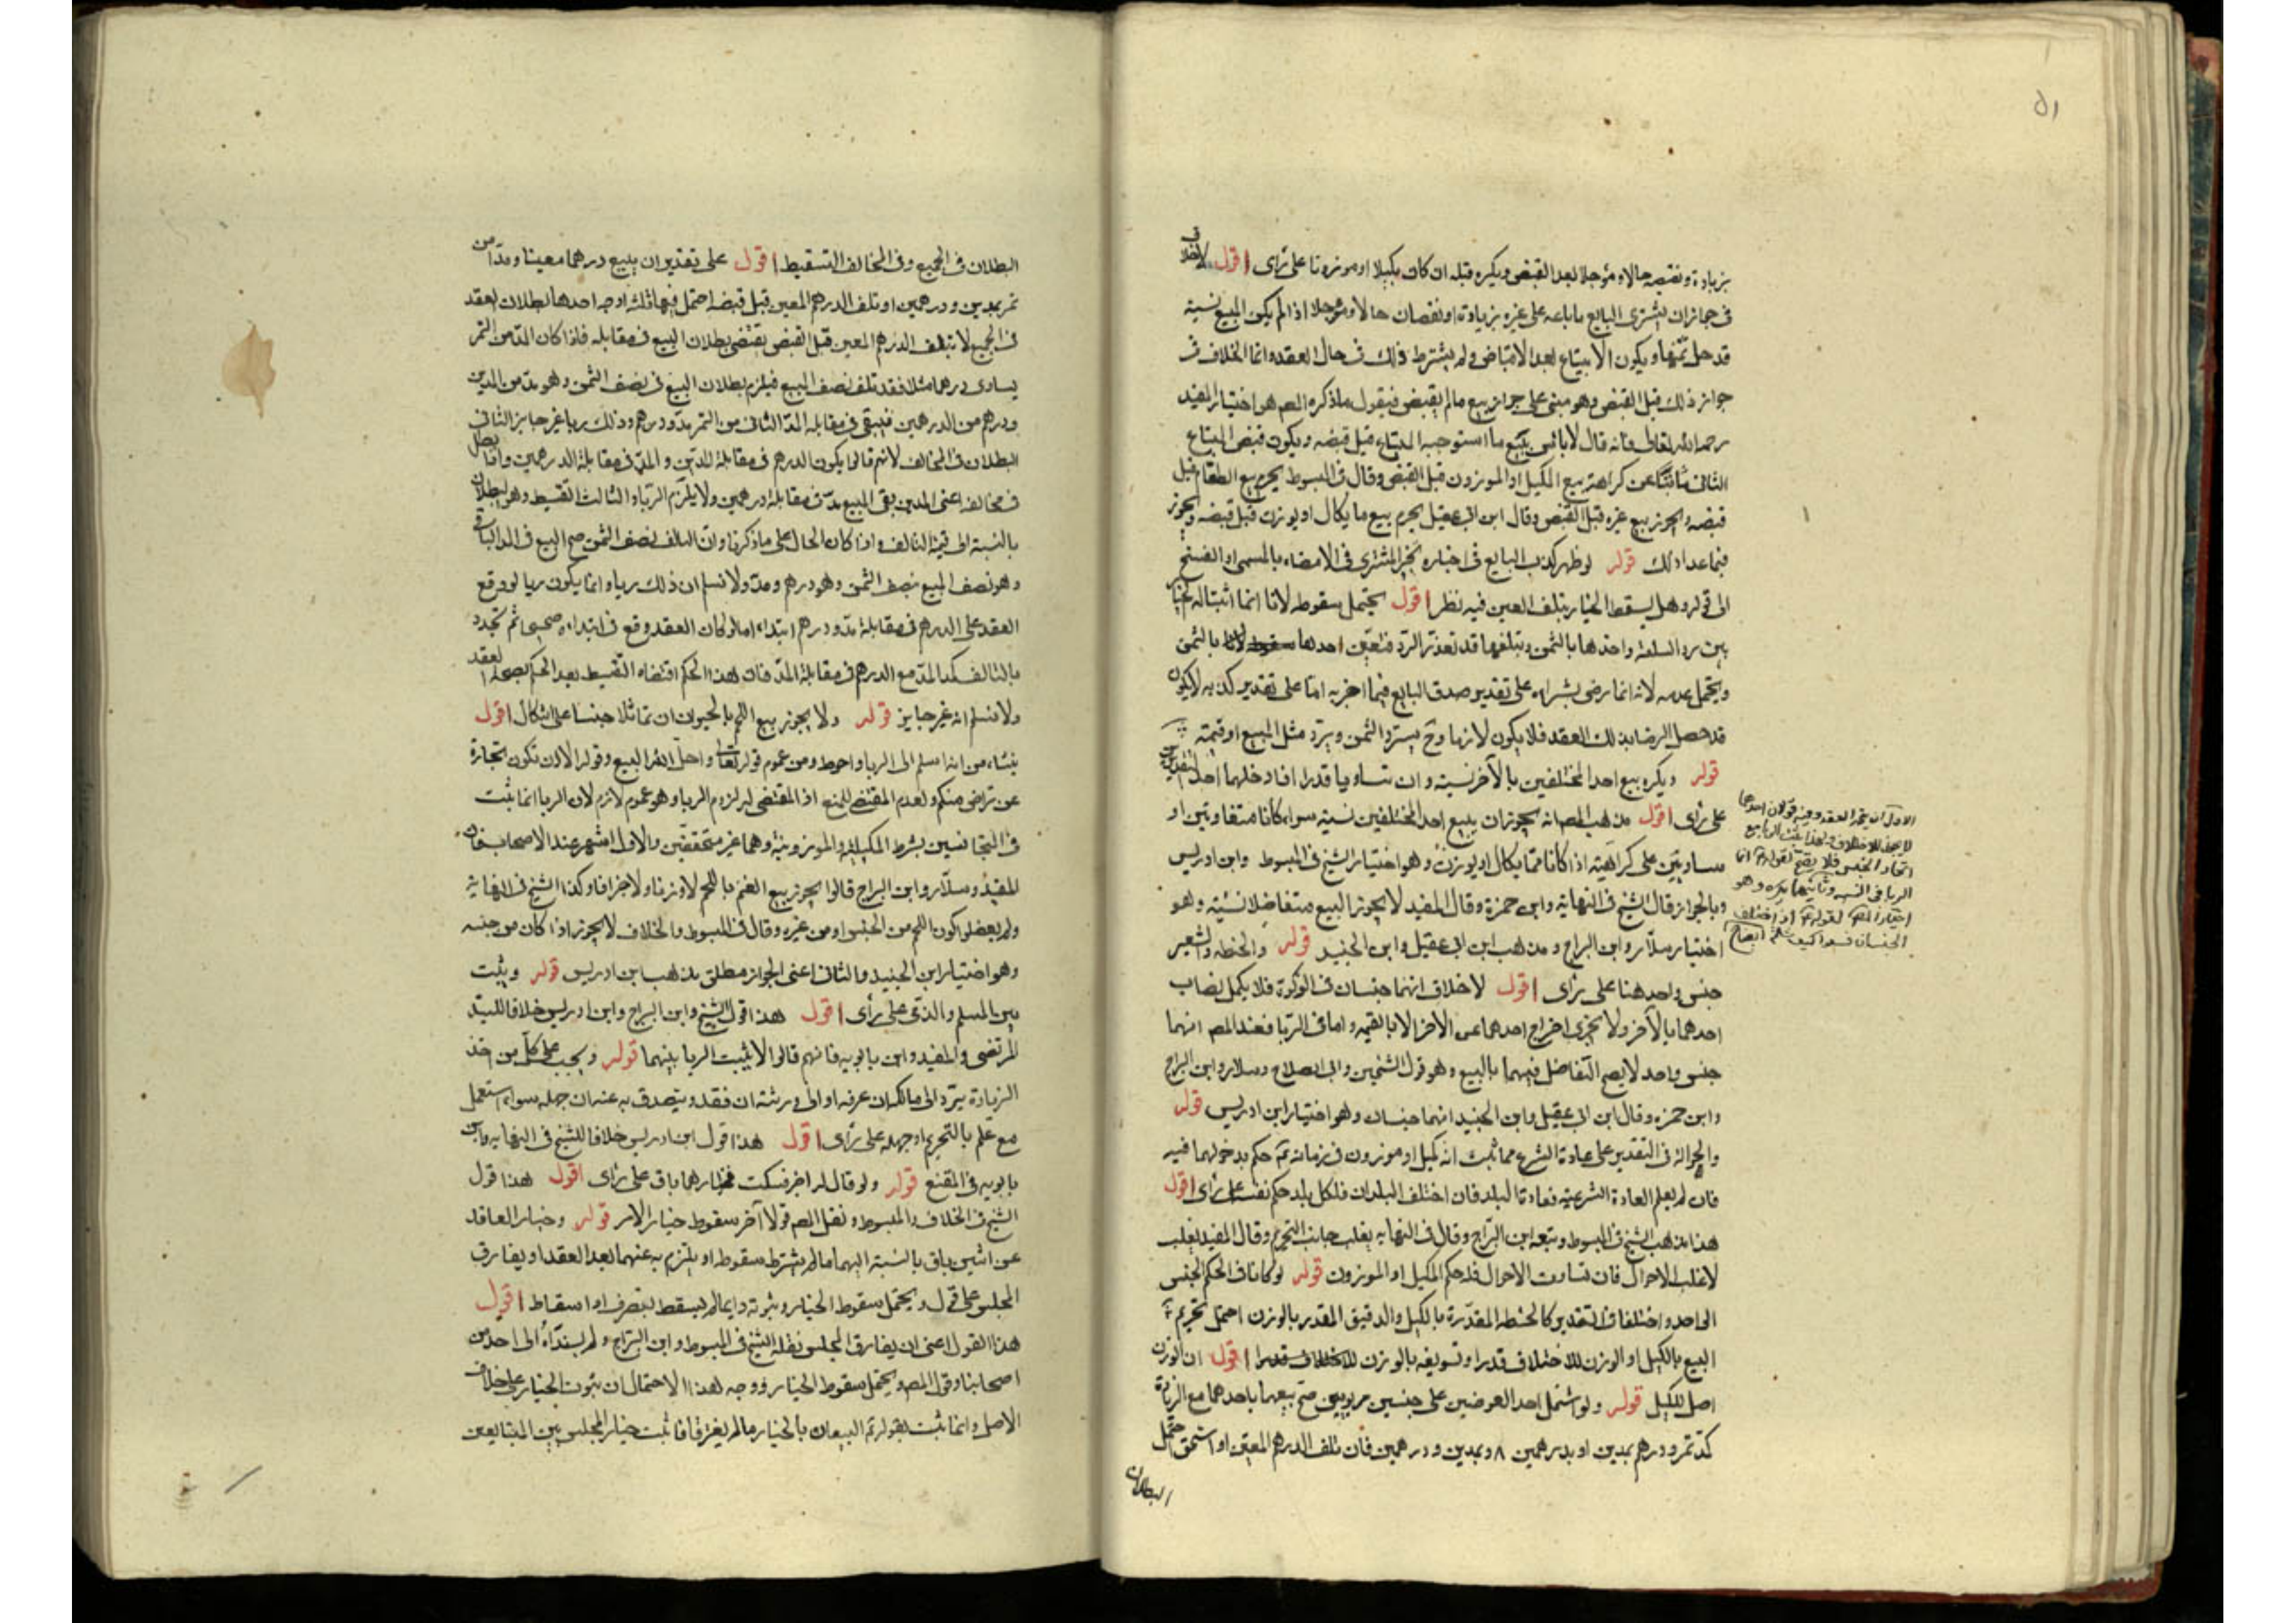 ٥١
بزيادة ونقيصه حالا ومؤجلا بعد القبض ويكره قبله ان كان مكيلا او موزونا على رأى اقول لا خلاف
فى جواز ان يشترى البايع ما باعه على غيره بزيادة او نقصان حالا ومؤجلا اذا لم يكن المبيع نسية
قد حل ثمنها ويكون الابتياع بعد الاقباض ولم يشترط ذلك فى حال العقد وانما الخلاف فى
جواز ذلك قبل القبض وهو مبنى على جواز بيع مالم يقبض فنقول ماذكره المص هو اختيار المفيد
رحمه الله تعالى فانه قال لا بأس ببيع ما استوجبه المبتاع قبل قبضه ويكون قبض المبتاع
الثانى نائبا عن كراهة بيع المكيل او الموزون قبل القبض وقال فى المبسوط يحرم بيع الطعام قبل
قبضه ويجوز بيع غيره قبل القبض وقال ابن ابى عقيل يحرم بيع ما يكال او يوزن قبل قبضه ويجوز
فيما عدا ذلك قوله لو ظهر كذب البايع فى اخباره تخير المشترى فى الامضاء بالمسمى او الفسخ
الى قوله وهل يسقط الخيار بتلف العين فيه نظر اقول يحتمل سقوطه لانا انما اثبتنا له الخيار
بين رد السلعة واخذها بالثمن وبتلفها قد تعذر الرد فتعين احدها بالثمن
ويحتمل عدمه لانه انما رضى بشراءه على تقدير صدق البايع فيما اخبر به اما على تقدير كذبه لا يكون
قد حصل الرضا بذلك العقد فلا يكون لازما وح يسترد الثمن ويرد مثل المبيع او قيمته
قوله ويكره بيع احد المختلفين بالآخر نسية وان تساويا قدرا اذا دخلهما احد التقديرين
على رأى اقول مذهب المص انه يجوز ان يبيع احد المختلفين نسية سواء كانا متفاوتين او
متساويين على كراهية اذا كانا مما يكال او يوزن وهو اختيار الشيخ فى المبسوط وابن ادريس
وبالجواز قال الشيخ فى النهاية وابن حمزة وقال المفيد لا يجوز البيع متفاضلا نسية وهو
اختيار سلار وابن البراج ومذهب ابن ابى عقيل وابن الجنيد قوله والحنطه والشعير
جنس واحد هنا على رأى اقول لا خلاف انهما جنسان فى الزكوة فلا يكمل نصاب
احدهما بالآخر ولا يجزى اخراج احدهما عن الآخر الا بالقيمه واما فى الربا فعند المص انهما
جنس واحد لا يصح التفاضل فيهما بالبيع وهو قول الشيخين وابى الصلاح وسلار وابن البراج
وابن حمزه وقال ابن ابى عقيل وابن الجنيد انهما جنسان وهو اختيار ابن ادريس قوله
والحوالة فى التقدير على عادة الشرع مما ثبت انه مكيل او موزون فى زمانه ع حكم بدخولهما فيه
فان لم يعلم العادة الشرعيه فعادة البلد فان اختلف البلدان فلكل بلد حكم نفسه على رأى اقول
هذا مذهب الشيخ فى المبسوط وتبعه ابن البراج وقال فى النهايه يغلب جانب التحريم وقال المفيد يغلب
لاغلب الاحوال فان تساوت الاحوال فله حكم المكيل او الموزون قوله لو كانا فى الحكم الجنس
الواحد واختلفا فى التقدير كالحنطه المقدرة بالكيل والدقيق المقدر بالوزن احتمل تحريم
البيع بالكيل او الوزن للاختلاف قدرا وتسويغه بالوزن اقول ان الوزن
اصل للكيل قوله ولو اشتمل احد العوضين على جنسين ربويين صح بيعهما باحدهما مع الزيادة
كمد تمر ودرهم بمدين او بدرهمين او بمدين ودرهمين فان تلف الدرهم المعين او استحق احتمل
البطلان
الاول ان يتحد العقد وفيه قولان احدهما
اتحاد الجنس فلا يصح لقوله ع انما
الربا فى النسيه وثانيهما يكره وهو
اختيار المص لقوله ع اذا اختلف
الجنسان فبيعوا كيف شئتم
البطلان فى الجميع وفى المخالف التقسيط اقول على تقدير ان يبيع درهما معينا ومدا من
تمر بمدين ودرهمين او تلف الدرهم المعين قبل قبضه احتمل فيها ثلثة اوجه احدها بطلان العقد
فى الجميع لان تلف الدرهم المعين قبل القبض يقتضى بطلان البيع فى مقابله فاذا كان المد من التمر
يساوى درهما مثلا فقد تلف نصف المبيع فيلزم بطلان البيع فى نصف الثمن وهو مد من المدين
ودرهم من الدرهمين فيبقى فى مقابلة المد الثانى من التمر مد ودرهم وذلك ربا غير جايز الثانى
البطلان فى المخالف لانهم قالوا يكون الدرهم فى مقابلة المدين والمد فى مقابلة الدرهمين واذا بطل
فى مخالفه اعنى المدين بقى المبيع مد فى مقابلة درهمين ولا يلزم الربا والثالث التقسيط وهو البطلان
بالنسبة الى قيمة التالف واذا كان الحال على ماذكرنا وان التالف نصف الثمن صح البيع فى المد الباقى
وهو نصف المبيع بنصف الثمن وهو درهم ومد ولا نسلم ان ذلك ربا وانما يكون ربا لو وقع
العقد على الدرهم فى مقابلة مد ودرهم ابتداء اما لو كان العقد وقع فى ابتداءه صحيحا ثم تجدد
بالتالف كما المد مع الدرهم فى مقابلة المد فان هذا الحكم اقتضاه التقسيط بعد الحكم بصحة العقد
ولا نسلم انه غير جايز قوله ولا يجوز بيع اللحم بالحيوان ان تماثلا جنسا على اشكال اقول
ينشاء من انه اسلم الى الربا واحوط ومن عموم قوله تعالى واحل الله البيع وقوله الا ان تكون تجارة
عن تراض منكم ولعدم المقتضى للمنع اذ المقتضى له لزوم الربا وهو غير لازم لان الربا انما يثبت
فى المتجانسين بشرط المكيلة والموزونية وهما غير متحققين والاول اشهر عند الاصحاب فان
المفيد وسلار وابن البراج قالوا لا يجوز بيع الغنم باللحم لا وزنا ولا جزافا وكذا الشيخ فى النهاية
ولم يفصلوا كون اللحم من الجنس او من غيره وقال فى المبسوط والخلاف لا يجوز اذا كان من جنسه
وهو اختيار ابن الجنيد والثانى اعنى الجواز مطلق مذهب ابن ادريس قوله ويثبت
بين المسلم والذمى على رأى اقول هذا قول الشيخ وابن البراج وابن ادريس خلافا للسيد
المرتضى والمفيد وابن بابويه فانهم قالوا لا يثبت الربا بينهما قوله ويجب على كل من اخذ
الزيادة يرد الى مالكه ان عرفه او الى ورثته ان فقد ويتصدق به عنه ان جهله سواء استعمل
مع علم بالتحريم او جهله على رأى اقول هذا قول ابن ادريس خلافا للشيخ فى النهايه وابن
بابويه فى المقنع قوله ولو قال له اختر فسكت فخيارهما باق على رأى اقول هذا قول
الشيخ فى الخلاف والمبسوط ونقل المص قولا آخر سقوط خيار الامر قوله وخيار العاقد
عن اثنين باق بالنسبة اليهما مالم يشترط سقوطه او يلتزم به عنهما بعد العقد او يفارق
المجلس على قول ويحتمل سقوط الخيار وثبوته دايما مالم يسقط بتصرف او اسقاط اقول
هذا القول اعنى ان يفارق المجلس نقله الشيخ فى المبسوط وابن البراج ولم يسنداه الى احد من
اصحابنا وقوى المص ويحتمل سقوط الخيار ووجه هذا الاحتمال ان ثبوت الخيار على خلاف
الاصل وانما ثبت بقوله ع البيعان بالخيار مالم يفترقا فاثبت خيار المجلس بين المتبايعين